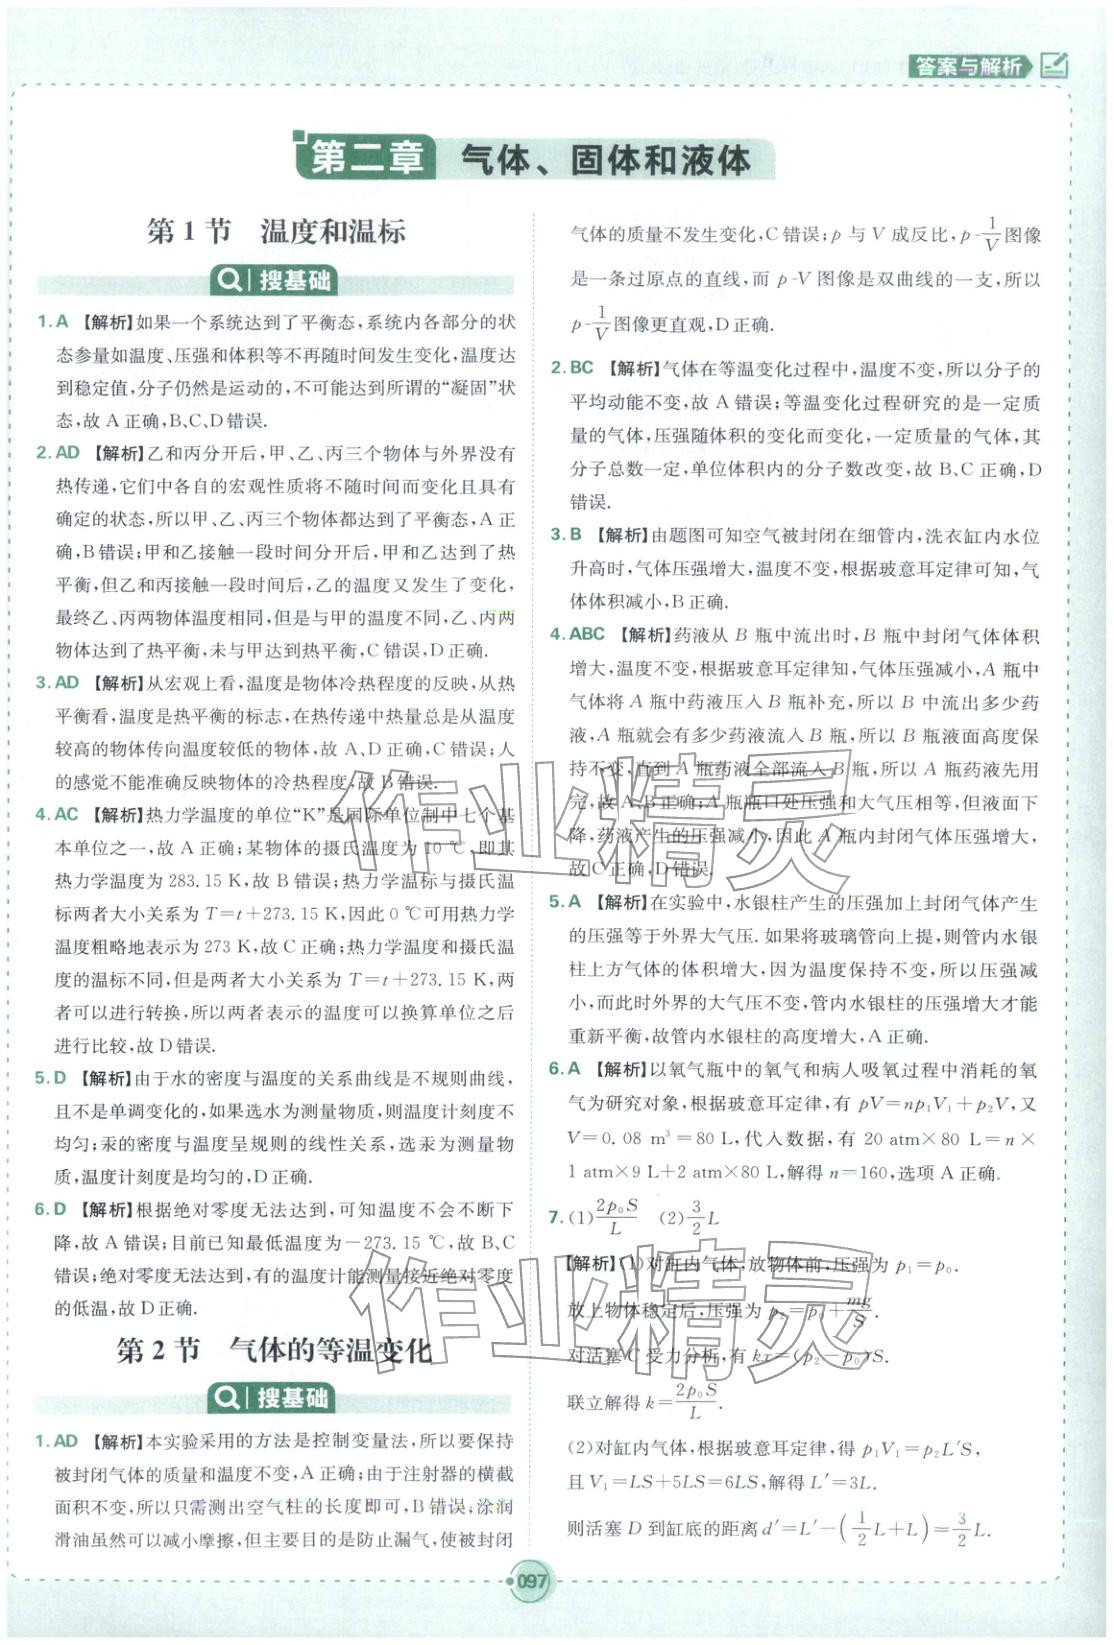 答案与解析
第二章 气体、固体和液体
第1节 温度和温标
搜基础
1.A 【解析】如果一个系统达到了平衡态,系统内各部分的状
态参量如温度、压强和体积等不再随时间发生变化,温度达
到稳定值,分子仍然是运动的,不可能达到所谓的“凝固”状
态,故A正确,B、C、D错误.
2.AD 【解析】乙和丙分开后,甲、乙、丙三个物体与外界没有
热传递,它们中各自的宏观性质将不随时间而变化且具有
确定的状态,所以甲、乙、丙三个物体都达到了平衡态,A正
确,B错误;甲和乙接触一段时间分开后,甲和乙达到了热
平衡,但乙和丙接触一段时间后,乙的温度又发生了变化,
最终乙、丙两物体温度相同,但是与甲的温度不同,乙、丙两
物体达到了热平衡,未与甲达到热平衡,C错误,D正确.
3.AD 【解析】从宏观上看,温度是物体冷热程度的反映,从热
平衡看,温度是热平衡的标志,在热传递中热量总是从温度
较高的物体传向温度较低的物体,故A、D正确,C错误;人
的感觉不能准确反映物体的冷热程度,故B错误.
4.AC 【解析】热力学温度的单位“K”是国际单位制中七个基
本单位之一,故A正确;某物体的摄氏温度为10 ℃,即其
热力学温度为283.15 K,故B错误;热力学温标与摄氏温
标两者大小关系为T=t+273.15 K,因此0 ℃可用热力学
温度粗略地表示为273 K,故C正确;热力学温度和摄氏温
度的温标不同,但是两者大小关系为T=t+273.15 K,两
者可以进行转换,所以两者表示的温度可以换算单位之后
进行比较,故D错误.
5.D 【解析】由于水的密度与温度的关系曲线是不规则曲线,
且不是单调变化的,如果选水为测量物质,则温度计刻度不
均匀;汞的密度与温度呈规则的线性关系,选汞为测量物
质,温度计刻度是均匀的,D正确.
6.D 【解析】根据绝对零度无法达到,可知温度不会不断下
降,故A错误;目前已知最低温度为-273.15 ℃,故B、C
错误;绝对零度无法达到,有的温度计能测量接近绝对零度
的低温,故D正确.
第2节 气体的等温变化
搜基础
1.AD 【解析】本实验采用的方法是控制变量法,所以要保持
被封闭气体的质量和温度不变,A正确;由于注射器的横截
面积不变,所以只需测出空气柱的长度即可,B错误;涂润
滑油虽然可以减小摩擦,但主要目的是防止漏气,使被封闭
气体的质量不发生变化,C错误;p与V成反比,p-1/V图像
是一条过原点的直线,而p-V图像是双曲线的一支,所以
p-1/V图像更直观,D正确.
2.BC 【解析】气体在等温变化过程中,温度不变,所以分子的
平均动能不变,故A错误;等温变化过程研究的是一定质
量的气体,压强随体积的变化而变化,一定质量的气体,其
分子总数一定,单位体积内的分子数改变,故B、C正确,D
错误.
3.B 【解析】由题图可知空气被封闭在细管内,洗衣缸内水位
升高时,气体压强增大,温度不变,根据玻意耳定律可知,气
体体积减小,B正确.
4.ABC 【解析】药液从B瓶中流出时,B瓶中封闭气体体积
增大,温度不变,根据玻意耳定律知,气体压强减小,A瓶中
气体将A瓶中药液压入B瓶补充,所以B中流出多少药
液,A瓶就会有多少药液流入B瓶,所以B瓶液面高度保
持不变,直到A瓶药液全部流入B瓶,所以A瓶药液先用
完,故A、B正确;A瓶瓶口处压强和大气压相等,但液面下
降,药液产生的压强减小,因此A瓶内封闭气体压强增大,
故C正确,D错误.
5.A 【解析】在实验中,水银柱产生的压强加上封闭气体产生
的压强等于外界大气压.如果将玻璃管向上提,则管内水银
柱上方气体的体积增大,因为温度保持不变,所以压强减
小,而此时外界的大气压不变,管内水银柱的压强增大才能
重新平衡,故管内水银柱的高度增大,A正确.
6.A 【解析】以氧气瓶中的氧气和病人吸氧过程中消耗的氧
气为研究对象,根据玻意耳定律,有pV=np₁V₁+p₂V,又
V=0.08 m³=80 L,代入数据,有20 atm×80 L=n×
1 atm×9 L+2 atm×80 L,解得n=160,选项A正确.
7.(1)2p₀S/L (2)3/2L
【解析】(1)对缸内气体,放物体前,压强为p₁=p₀.
放上物体稳定后,压强为p₂=p₁+mg/S.
对活塞C受力分析,有kx=(p₂-p₀)S.
联立解得k=2p₀S/L.
(2)对缸内气体,根据玻意耳定律,得p₁V₁=p₂L′S,
且V₁=LS+5LS=6LS,解得L′=3L.
则活塞D到缸底的距离d′=L′-(1/2L+L)=3/2L.
097
作业精灵
作业精灵